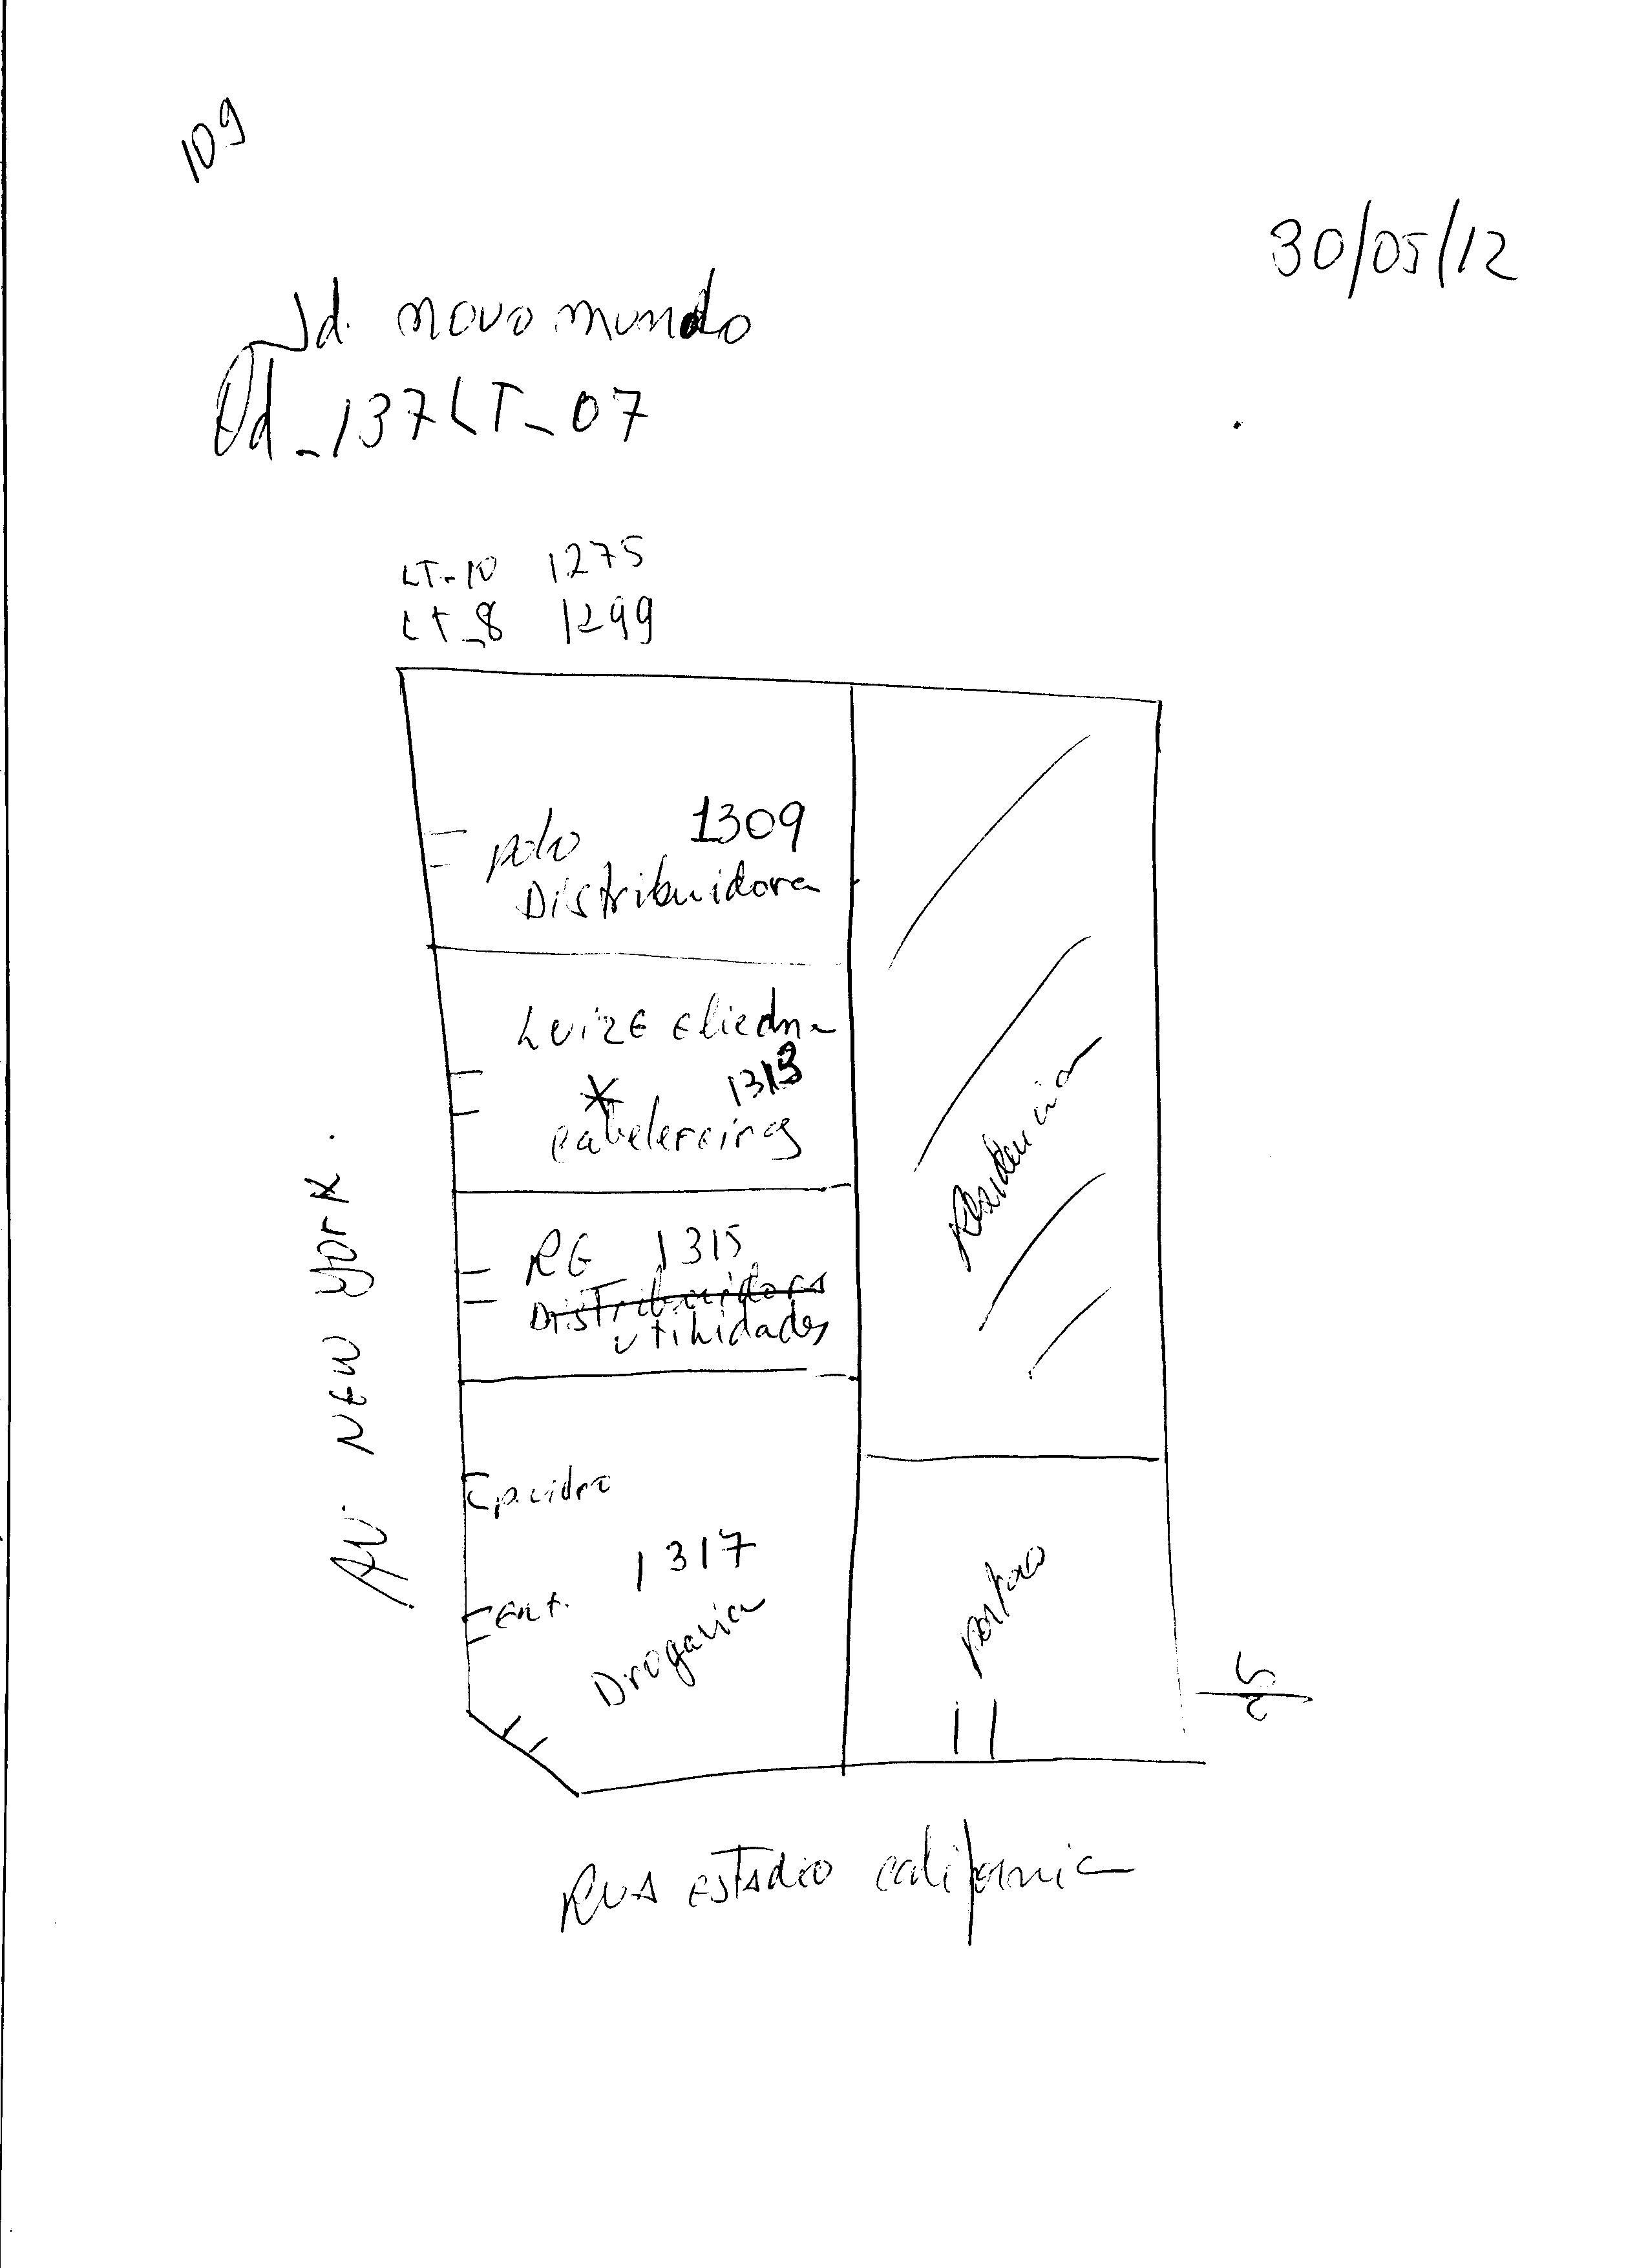 109
30/05/12
Jd. novo mundo
Qd_137 LT_07
LT-10 1275
LT_8 1299
polo 1309
Distribuidora
LUIZ E Eliedna
* 1313
cabelereiros
RG 1315
Distribuidora
utilidades
p. vidro
1317
Ent.
Drogaria
Residencia
portao
AV. NEW YORK.
RUA ESTADIO california